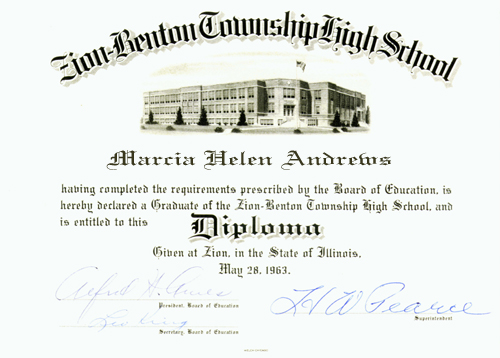 Zion-Benton Township High School
Marcia Helen Andrews
having completed the requirements prescribed by the Board of Education, is
hereby declared a Graduate of the Zion-Benton Township High School, and
is entitled to this Diploma
Given at Zion, in the State of Illinois,
May 28, 1963.
Alfred H. Ames
President, Board of Education
H W Pearce
Superintendent
Secretary, Board of Education